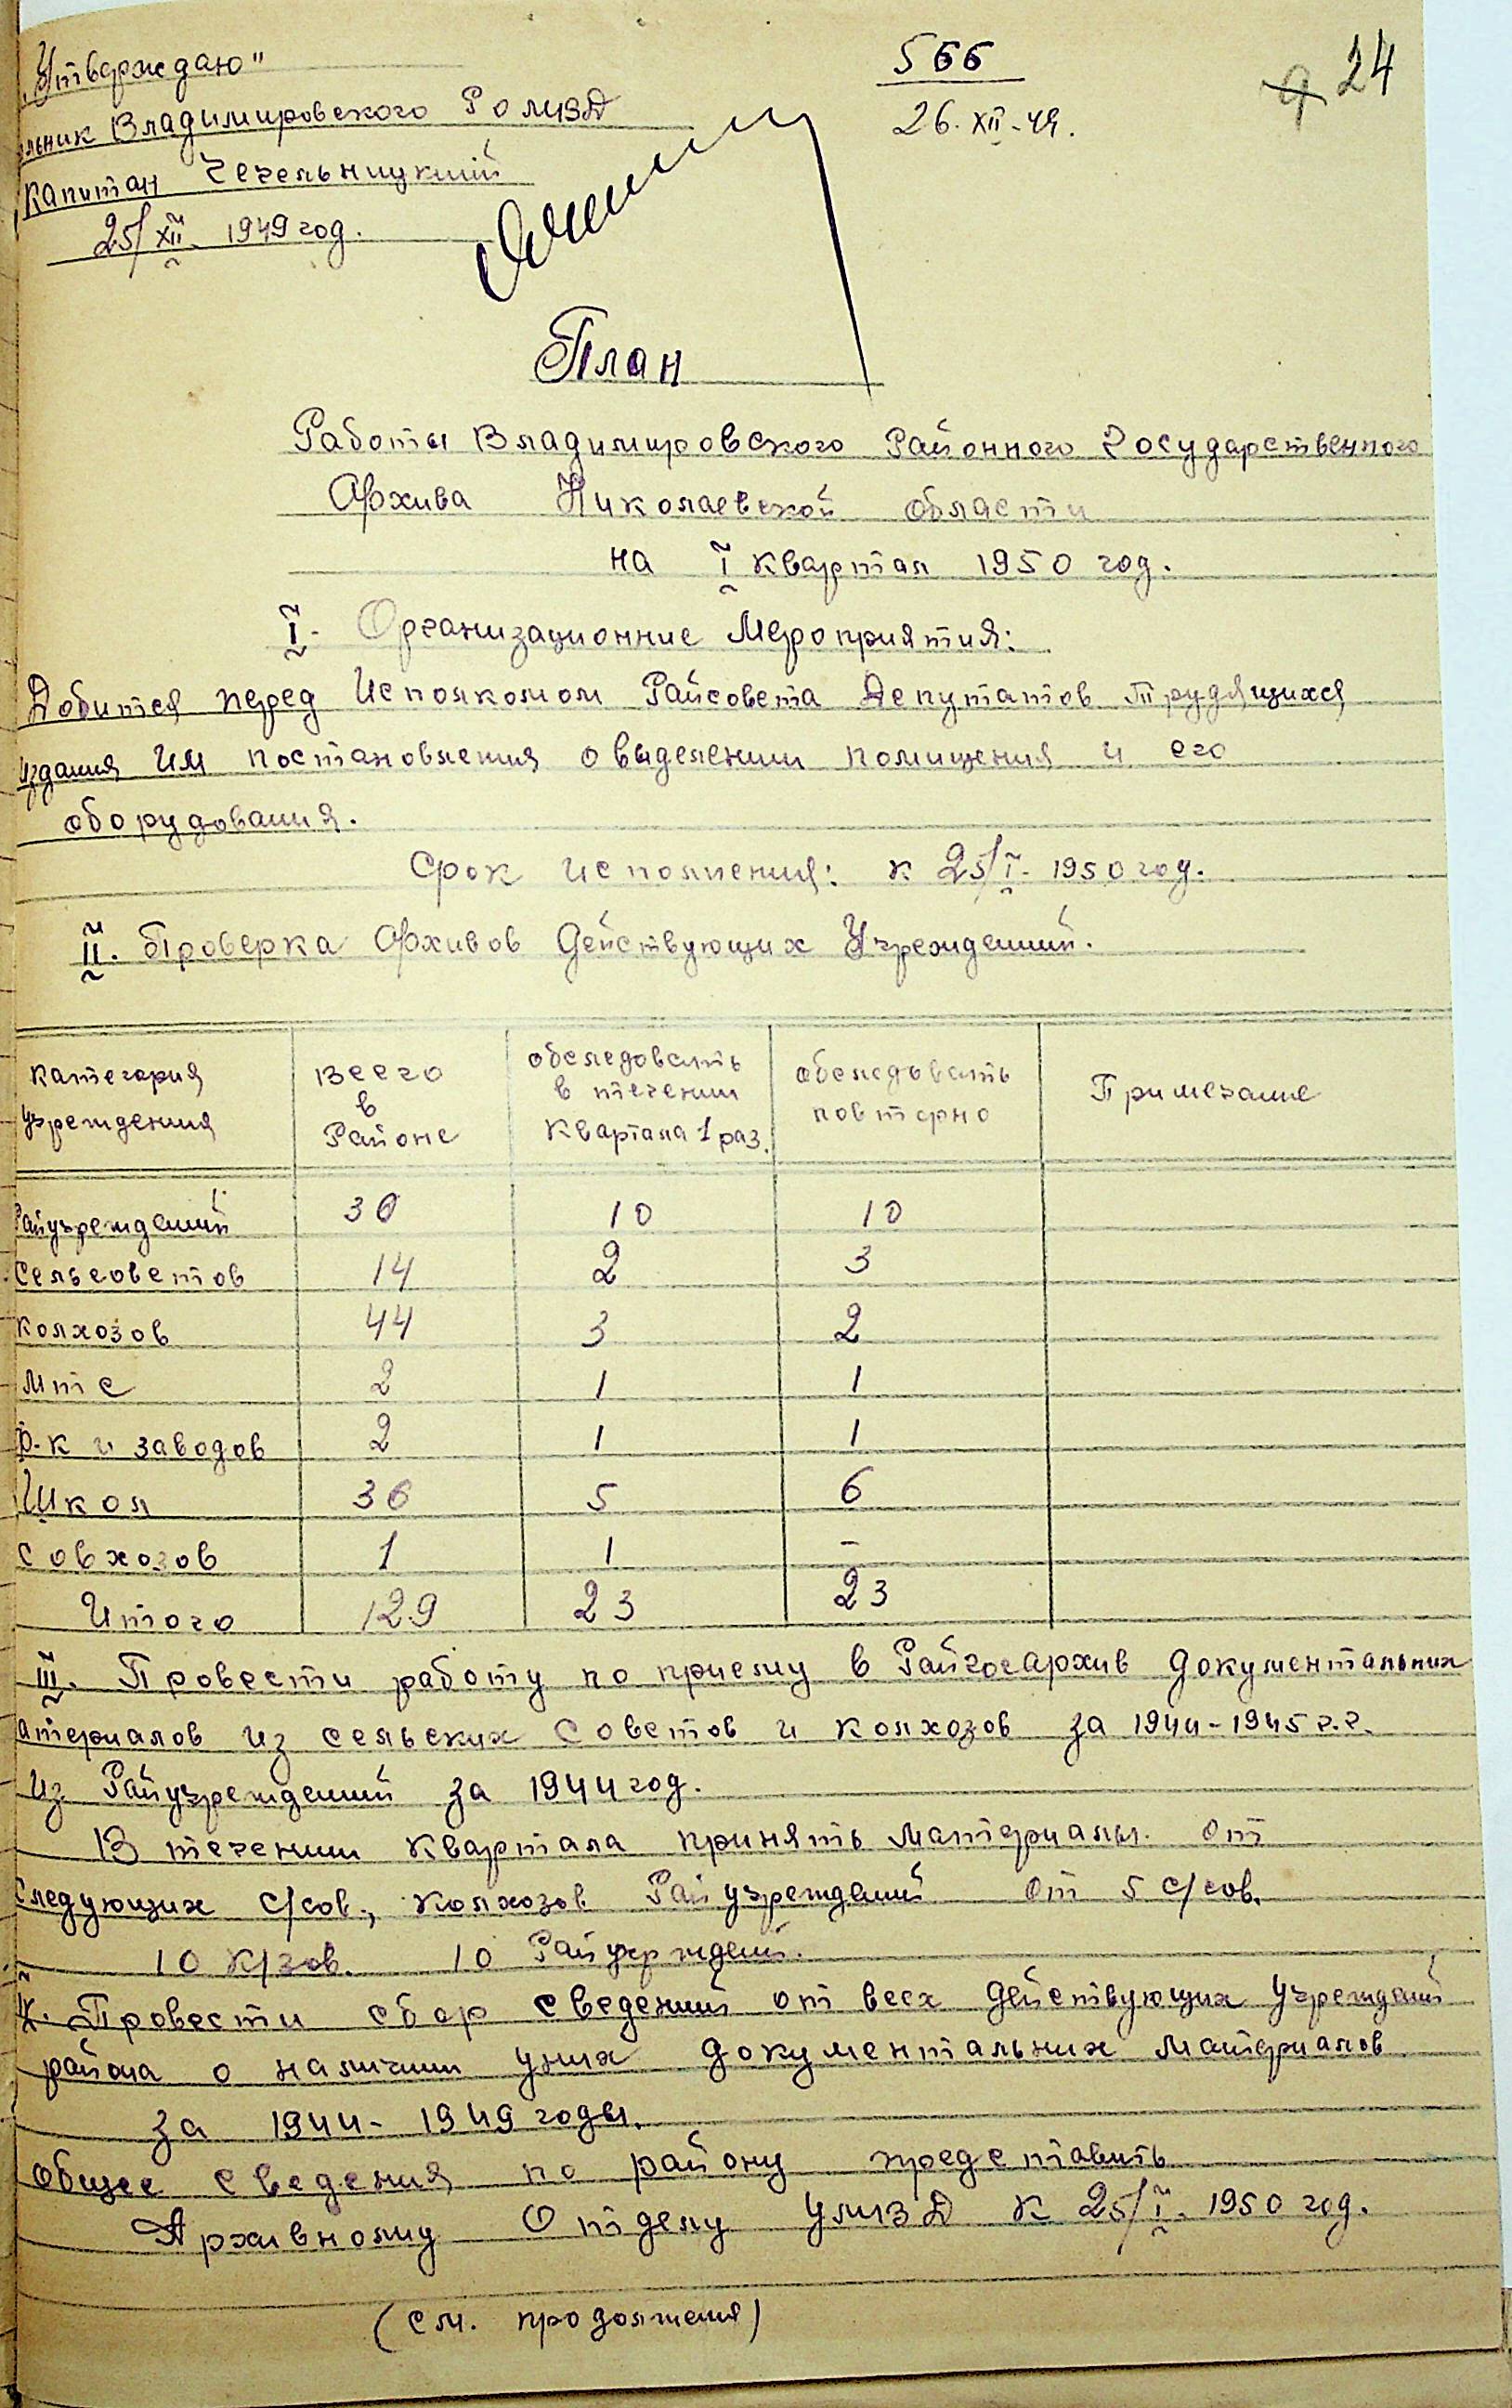 „Утверждаю"
льник Владимировского РОМВД
капитан Чечельницкий
25/XII. 1949 год.
566
26.XII-49.
9 24
План
Работы Владимировского Районного Государственного
Архива Николаевской области
на I квартал 1950 год.
I. Организационние Мероприятия:
Добится перед Исполкомом Райсовета Депутатов Трудящихся
издания им постановления о выделении помищения и его
оборудования.
Срок исполнения: к 25/I. 1950 год.
II. Проверка Архивов Действующих Учреждений.
категория учреждения | Всего в Районе | обследовать в течении Квартала 1 раз. | обследовать повторно | Примечание
Райучреждений 30 10 10
Сельсоветов 14 2 3
колхозов 44 3 2
Мтс 2 1 1
ф-к и заводов 2 1 1
Школ 36 5 6
Совхозов 1 1 -
Итого 129 23 23
III. Провести работу по приему в Райгосархив документальних
атериалов из сельских Советов и колхозов за 1944-1945 г.г.
Из Райучреждений за 1944 год.
В течении квартала принять материалы от
следующих с/сов., колхозов Райучреждений от 5 с/сов.
10 к/зов. 10 Райучрждений.
Провести сбор сведений от всех действующих учреждений
района о наличии у них документальних материалов
за 1944-1949 годы.
общее сведения по району представить
Архивному Отделу УМВД к 25/I. 1950 год.
(см. продолжения)